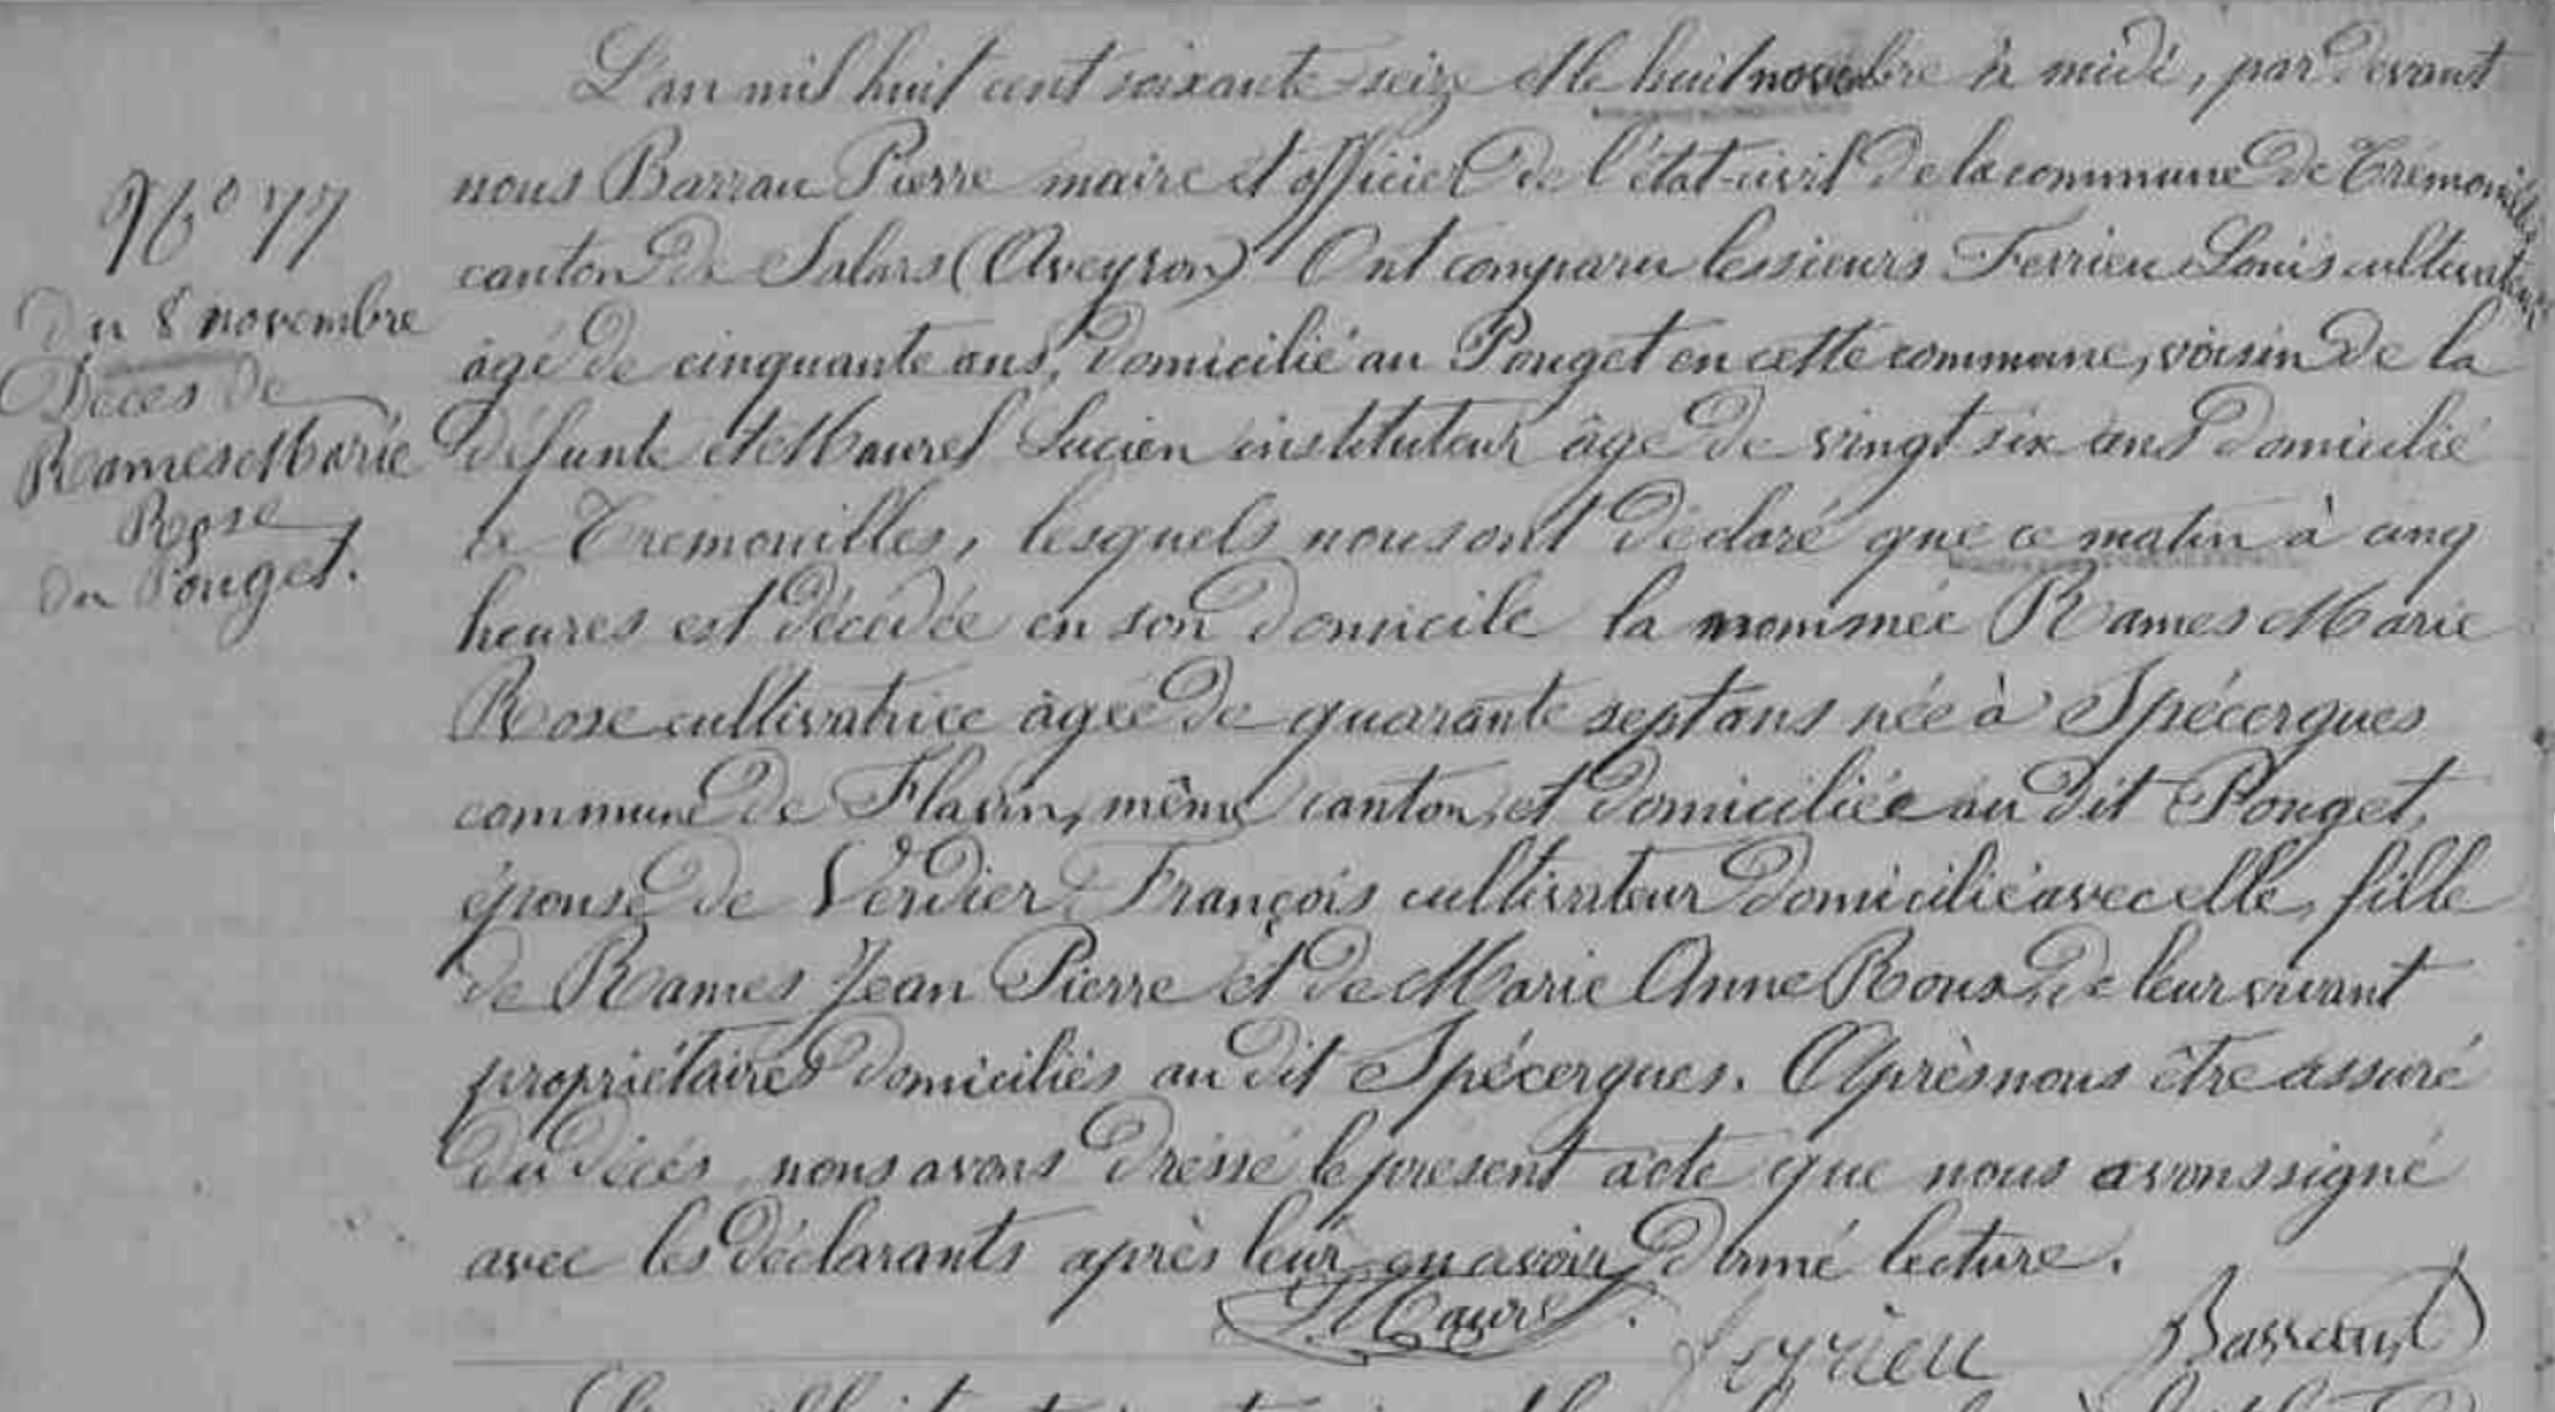 N° 77
Du 8 novembre
Décès de
Rames Marie
Rose
du Pouget.
L'an mil huit cent soixante-seize et le huit novembre à midi, par devant
nous Barrau Pierre maire et officier de l'état-civil de la commune de Trémouilles
canton de Salars (Aveyron) Ont comparu les sieurs Ferrieu Louis cultivateur
âgé de cinquante ans, domicilié au Pouget en cette commune, voisin de la
défunte et Maurel Lucien instituteur âgé de vingt six ans domicilié
à Trémouilles, lesquels nous ont déclaré que ce matin à cinq
heures est décédée en son domicile la nommée Rames Marie
Rose cultivatrice âgée de quarante sept ans née à Spécergues
commune de Flavin, même canton, et domiciliée au dit Pouget,
épouse de Verdier François cultivateur domicilié avec elle, fille
de Rames Jean Pierre et de Marie Anne Roux de leur vivant
propriétaires domiciliés au dit Spécergues. Après nous être assuré
du décés, nous avons dréssé le présent acte que nous avons signé
avec les déclarants après leur en avoir donné lecture.
Maurel Ferrieu